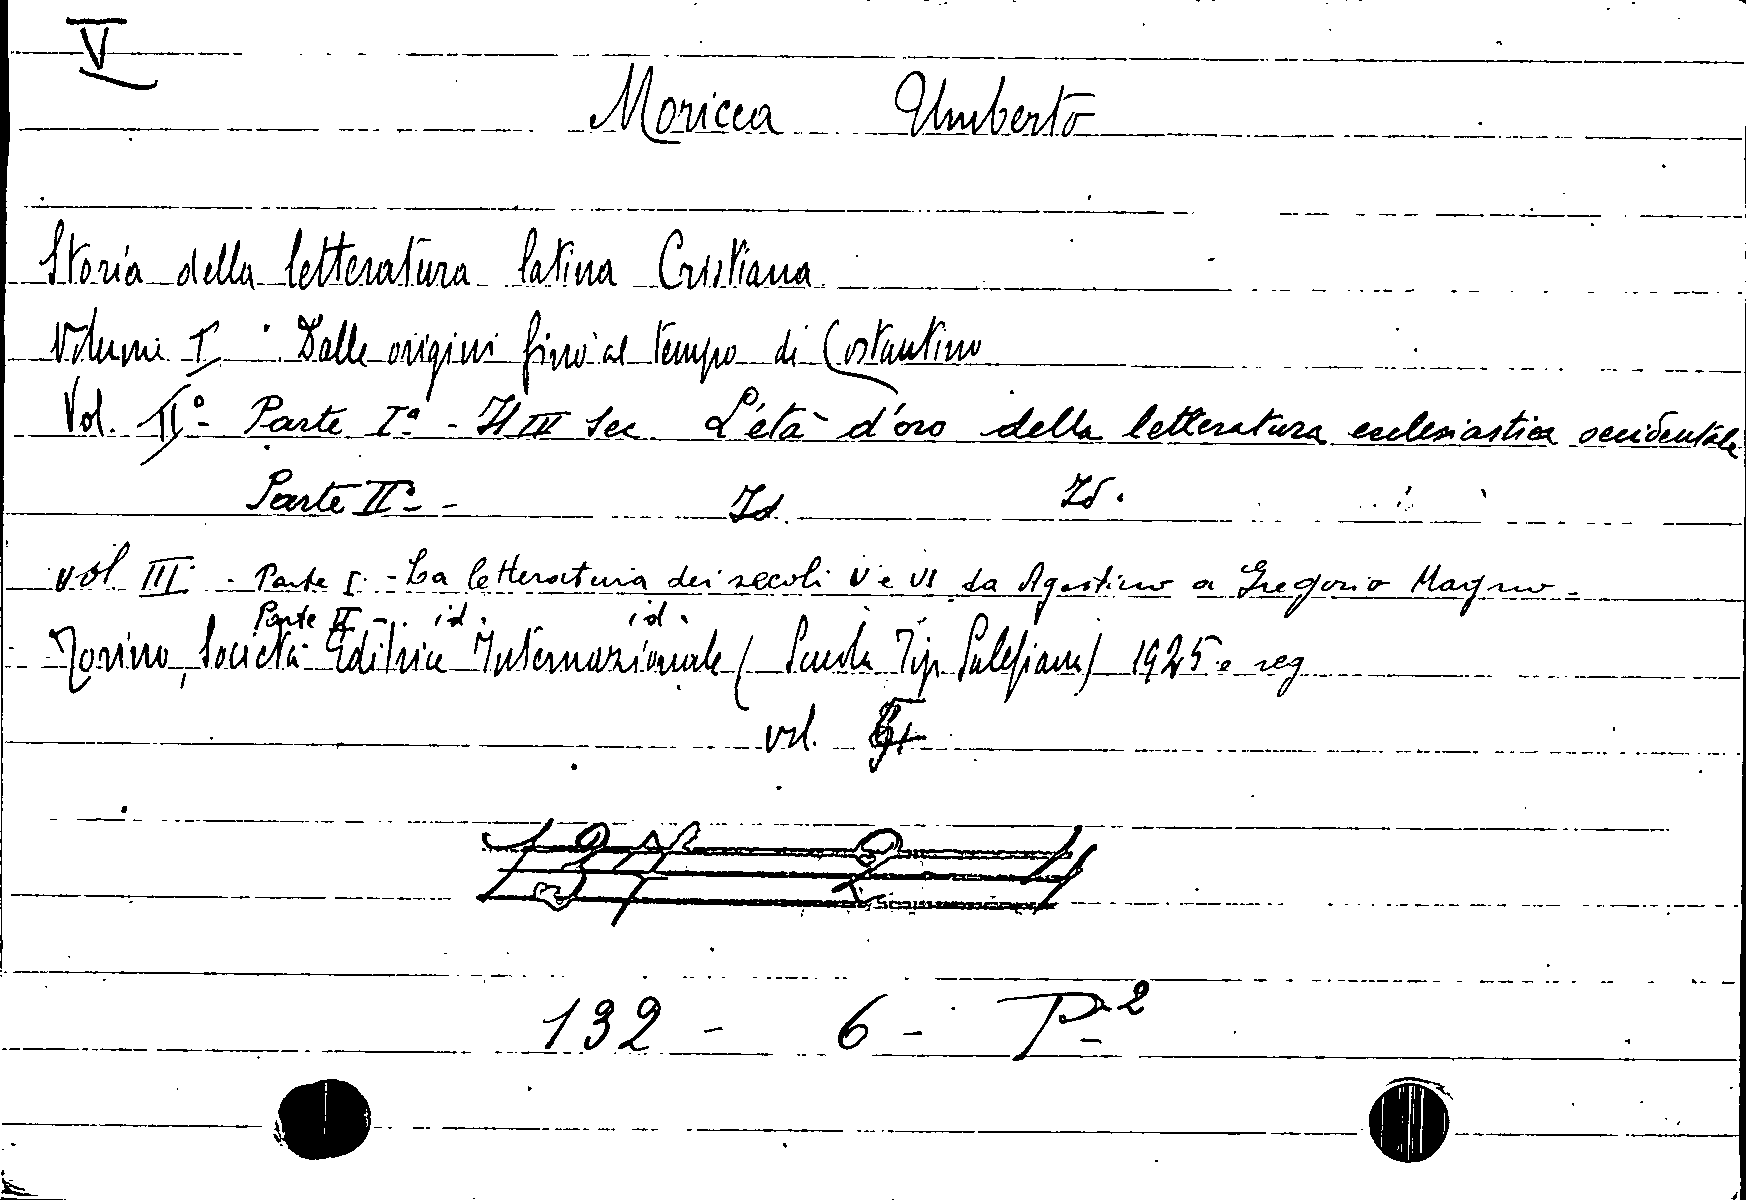 V
Moricca Umberto
Storia della letteratura latina Cristiana
Volume I : Dalle origini fino al tempo di Costantino
Vol. II° - Parte Iª - Il IV Sec L'età d'oro della letteratura ecclesiastica occidentale
Parte IIª - Id. Id.
vol III - Parte I - La letteratura dei secoli V e VI da Agostino a Gregorio Magno -
Parte II - id. id.
Torino, Società Editrice Internazionale (Scuola Tip Salesiana) 1925 e seg
vol.
132 - 6 - P-2